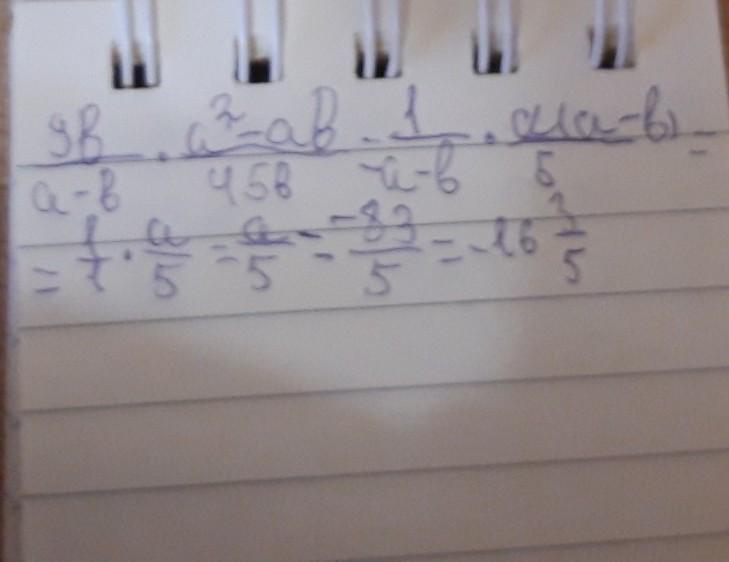 9b/(a-b) · (a²-ab)/45b = 1/(a-b) · a(a-b)/5 =
= 1/1 · a/5 = a/5 = -83/5 = -16 3/5